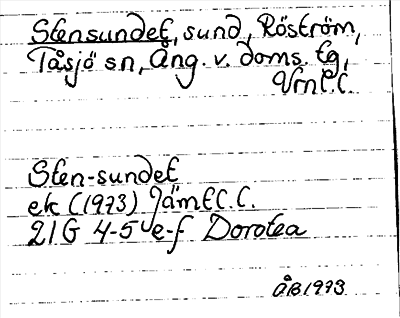 Stensundet, sund, Röström,
Tåsjö sn, Ång. v. doms. tg,
Vrnl.C.
Sten-sundet
ek (1973) Jämtl.C.
21G 4-5 e-f Dorotea
ÅB1973